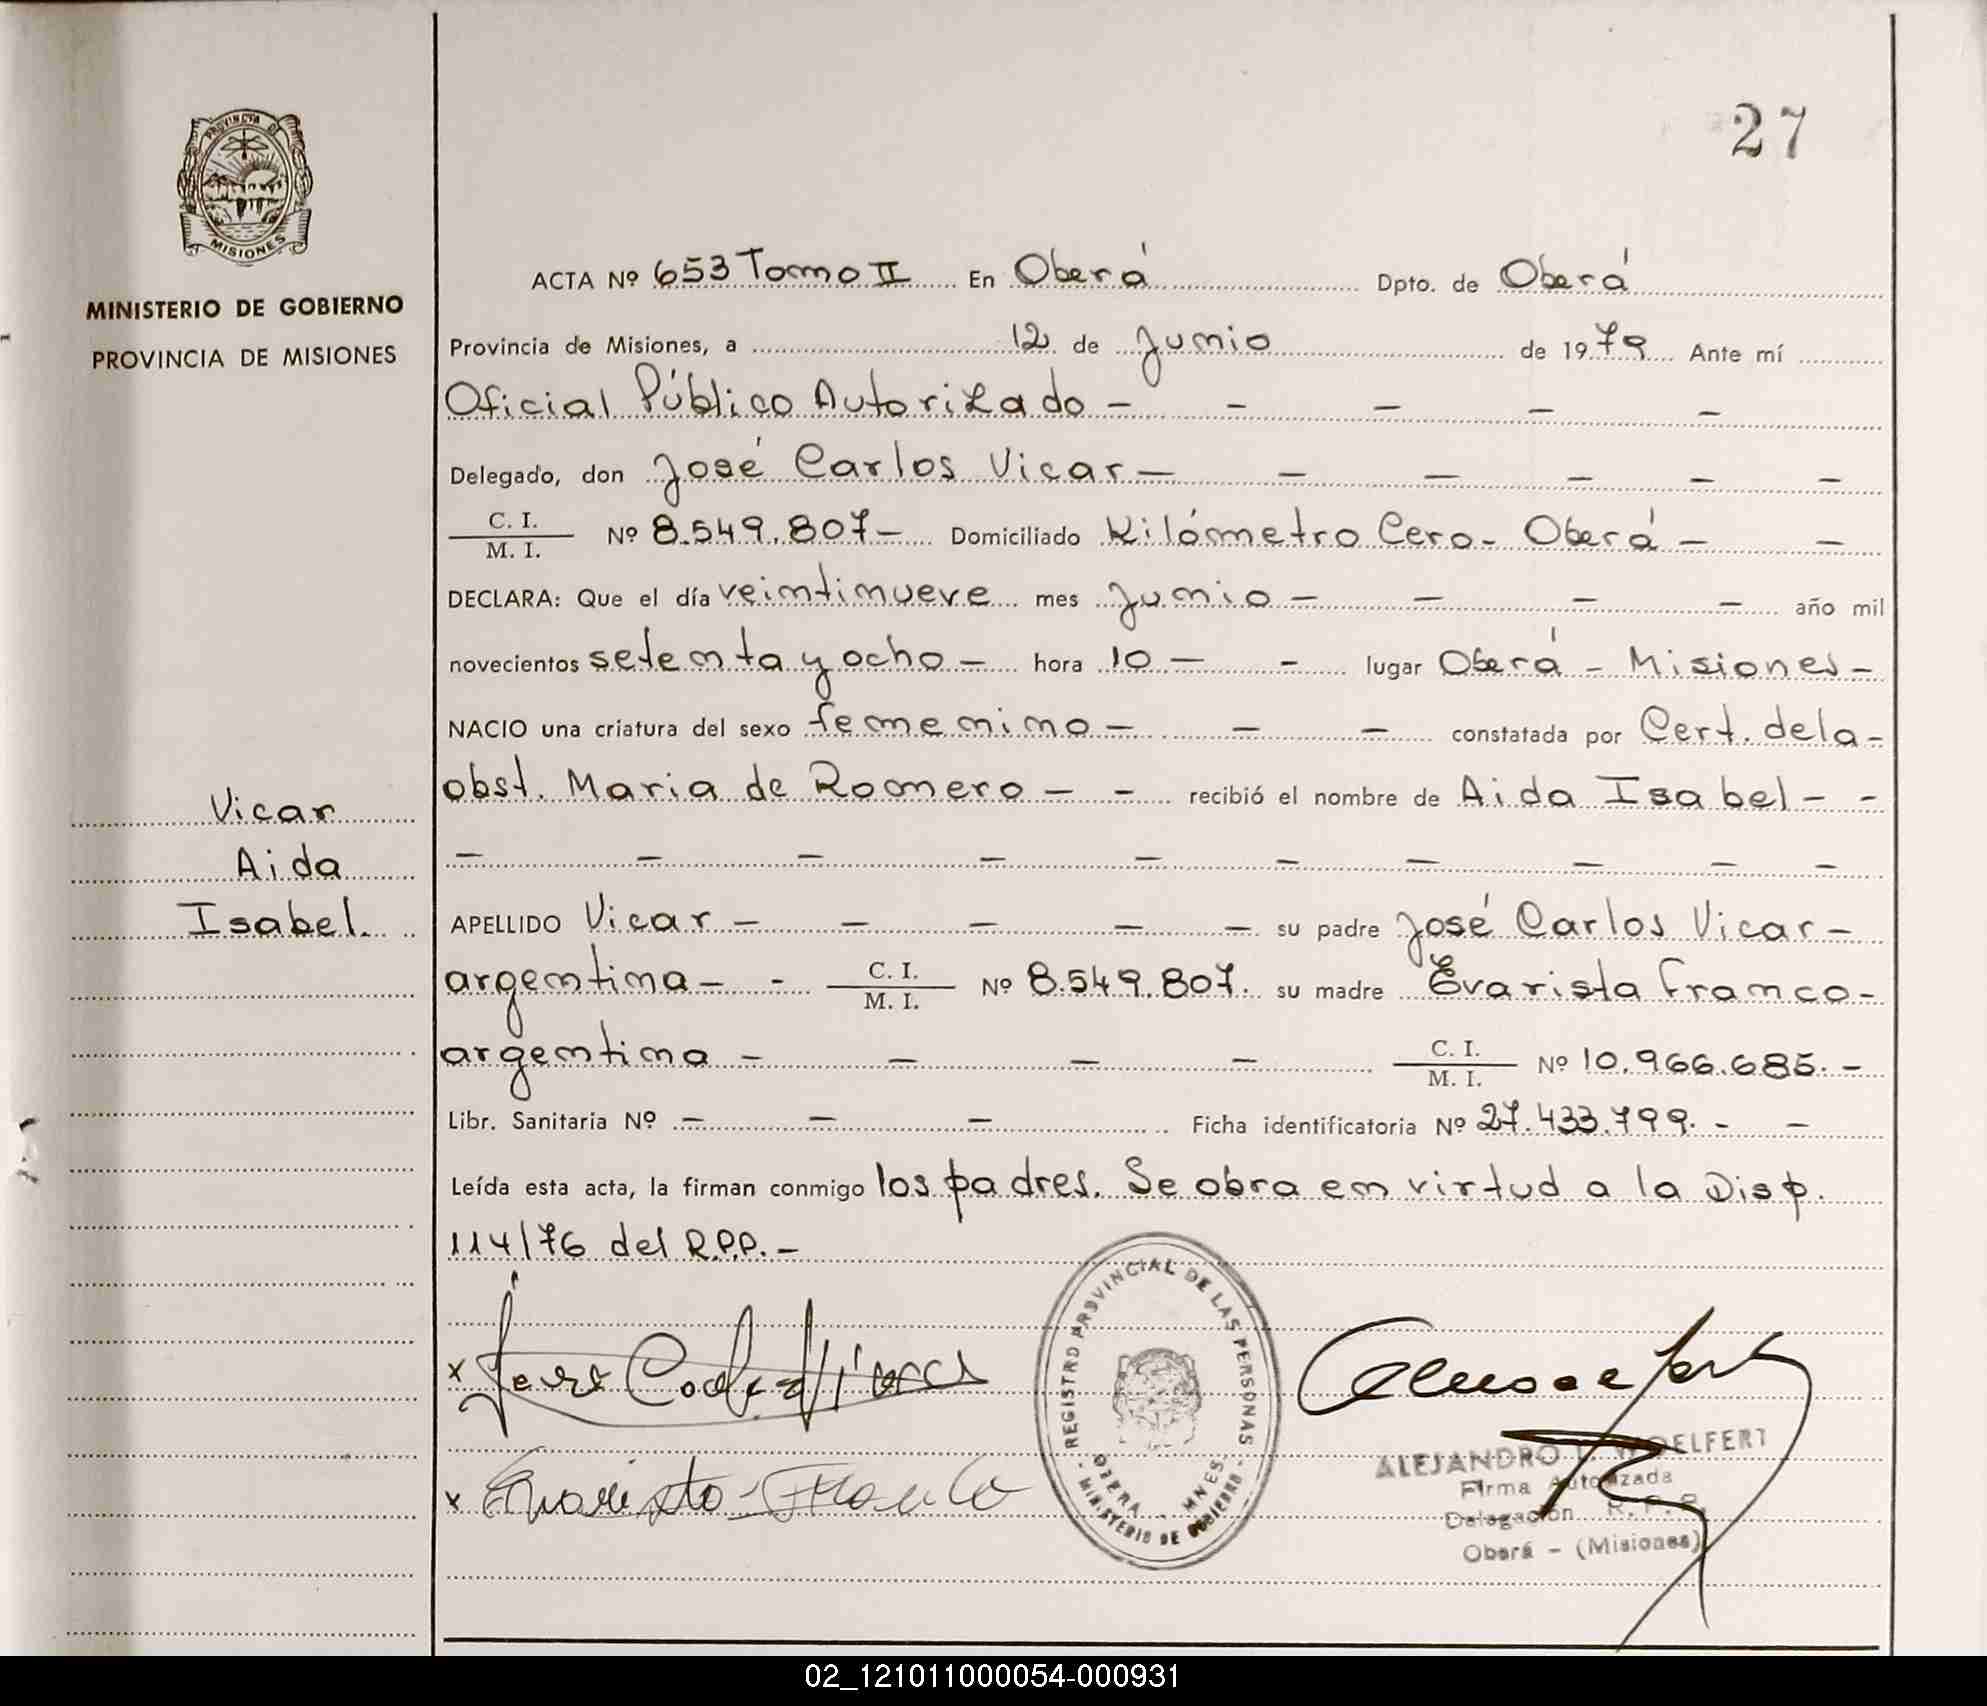 27
PROVINCIA DE
MISIONES
MINISTERIO DE GOBIERNO
PROVINCIA DE MISIONES
ACTA Nº 653 Tomo II En Oberá Dpto. de Oberá
Provincia de Misiones, a 12 de Junio de 1979 Ante mí
Oficial Público Autorizado - - - - -
Delegado, don José Carlos Vicar - - - - - -
C. I.
M. I. Nº 8.549.807 - Domiciliado Kilómetro Cero - Oberá - -
DECLARA: Que el día veintinueve mes Junio - - - - año mil
novecientos setenta y ocho - hora 10 - - lugar Oberá - Misiones -
NACIO una criatura del sexo femenino - - - constatada por Cert. de la -
obst. Maria de Romero - - recibió el nombre de Aida Isabel - -
- - - - - - - - - -
Vicar
Aida
Isabel.
APELLIDO Vicar - - - - - su padre José Carlos Vicar -
argentina - - C. I.
M. I. Nº 8.549.807. su madre Evarista Franco -
argentina - - - - C. I.
M. I. Nº 10.966.685. -
Libr. Sanitaria Nº - - - Ficha identificatoria Nº 27.433.799. - -
Leída esta acta, la firman conmigo los padres. Se obra en virtud a la Disp.
114/76 del R.P.P. -
x
x Evaristo Franco
REGISTRO PROVINCIAL DE LAS PERSONAS
OBERA - MNES.
- MINISTERIO DE GOBIERNO -
ALEJANDRO WOELFERT
Firma Autorizada
Delegación R. P. P.
Oberá - (Misiones)
02_121011000054-000931